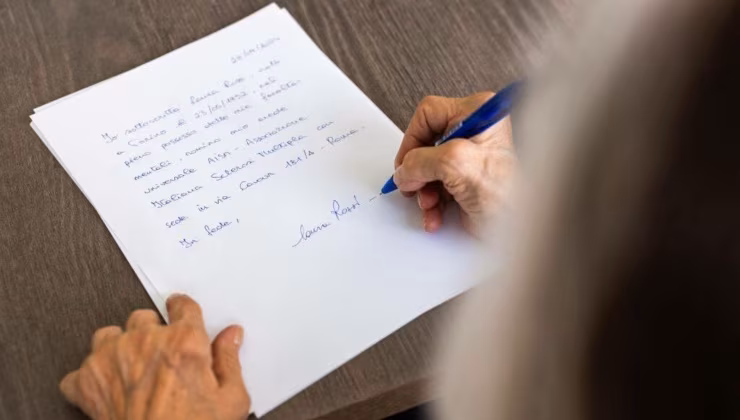 Io sottoscritta Laura Rossi, nata
a Torino il 23/06/1952, nel
pieno possesso delle mie facoltà
mentali, nomino mio erede
universale Aism - Associazione
Italiana Sclerosi Multipla con
sede in via Cavour 181/A - Roma.
In fede,
Laura Rossi